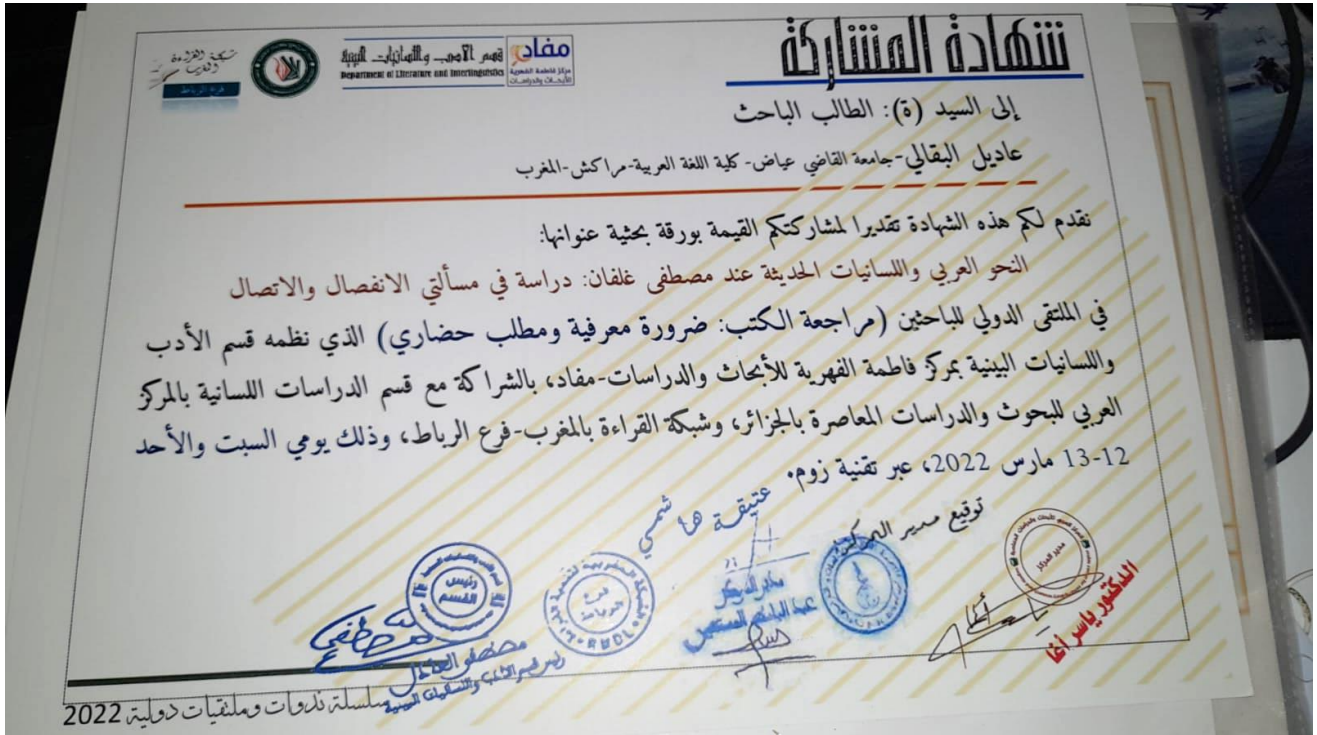 شهادة المشاركة
مفاد
مركز فاطمة الفهرية
للأبحاث والدراسات
قسم الأدب واللسانيات البينية
Department of Literature and Interlinguistics
شبكة القراءة
فرع الرباط
إلى السيد (ة): الطالب الباحث
عاديل البقالي-جامعة القاضي عياض-كلية اللغة العربية-مراكش-المغرب
نقدم لكم هذه الشهادة تقديرا لمشاركتكم القيمة بورقة بحثية عنوانها:
النحو العربي واللسانيات الحديثة عند مصطفى غلفان: دراسة في مسألتي الانفصال والاتصال
في الملتقى الدولي للباحثين (مراجعة الكتب: ضرورة معرفية ومطلب حضاري) الذي نظمه قسم الأدب
واللسانيات البينية بمركز فاطمة الفهرية للأبحاث والدراسات-مفاد، بالشراكة مع قسم الدراسات اللسانية بالمركز
العربي للبحوث والدراسات المعاصرة بالجزائر، وشبكة القراءة بالمغرب-فرع الرباط، وذلك يومي السبت والأحد
12-13 مارس 2022، عبر تقنية زوم.
توقيع مدير المركز
عتيقة هاشمي
مدير المركز
مدير المركز
عبد الباسط
الدكتور ياسر أغا
فرع
الرباط
RBDL
رئيس
القسم
مصطفى
رئيس قسم الأدب واللسانيات البينية
سلسلة ندوات وملتقيات دولية 2022